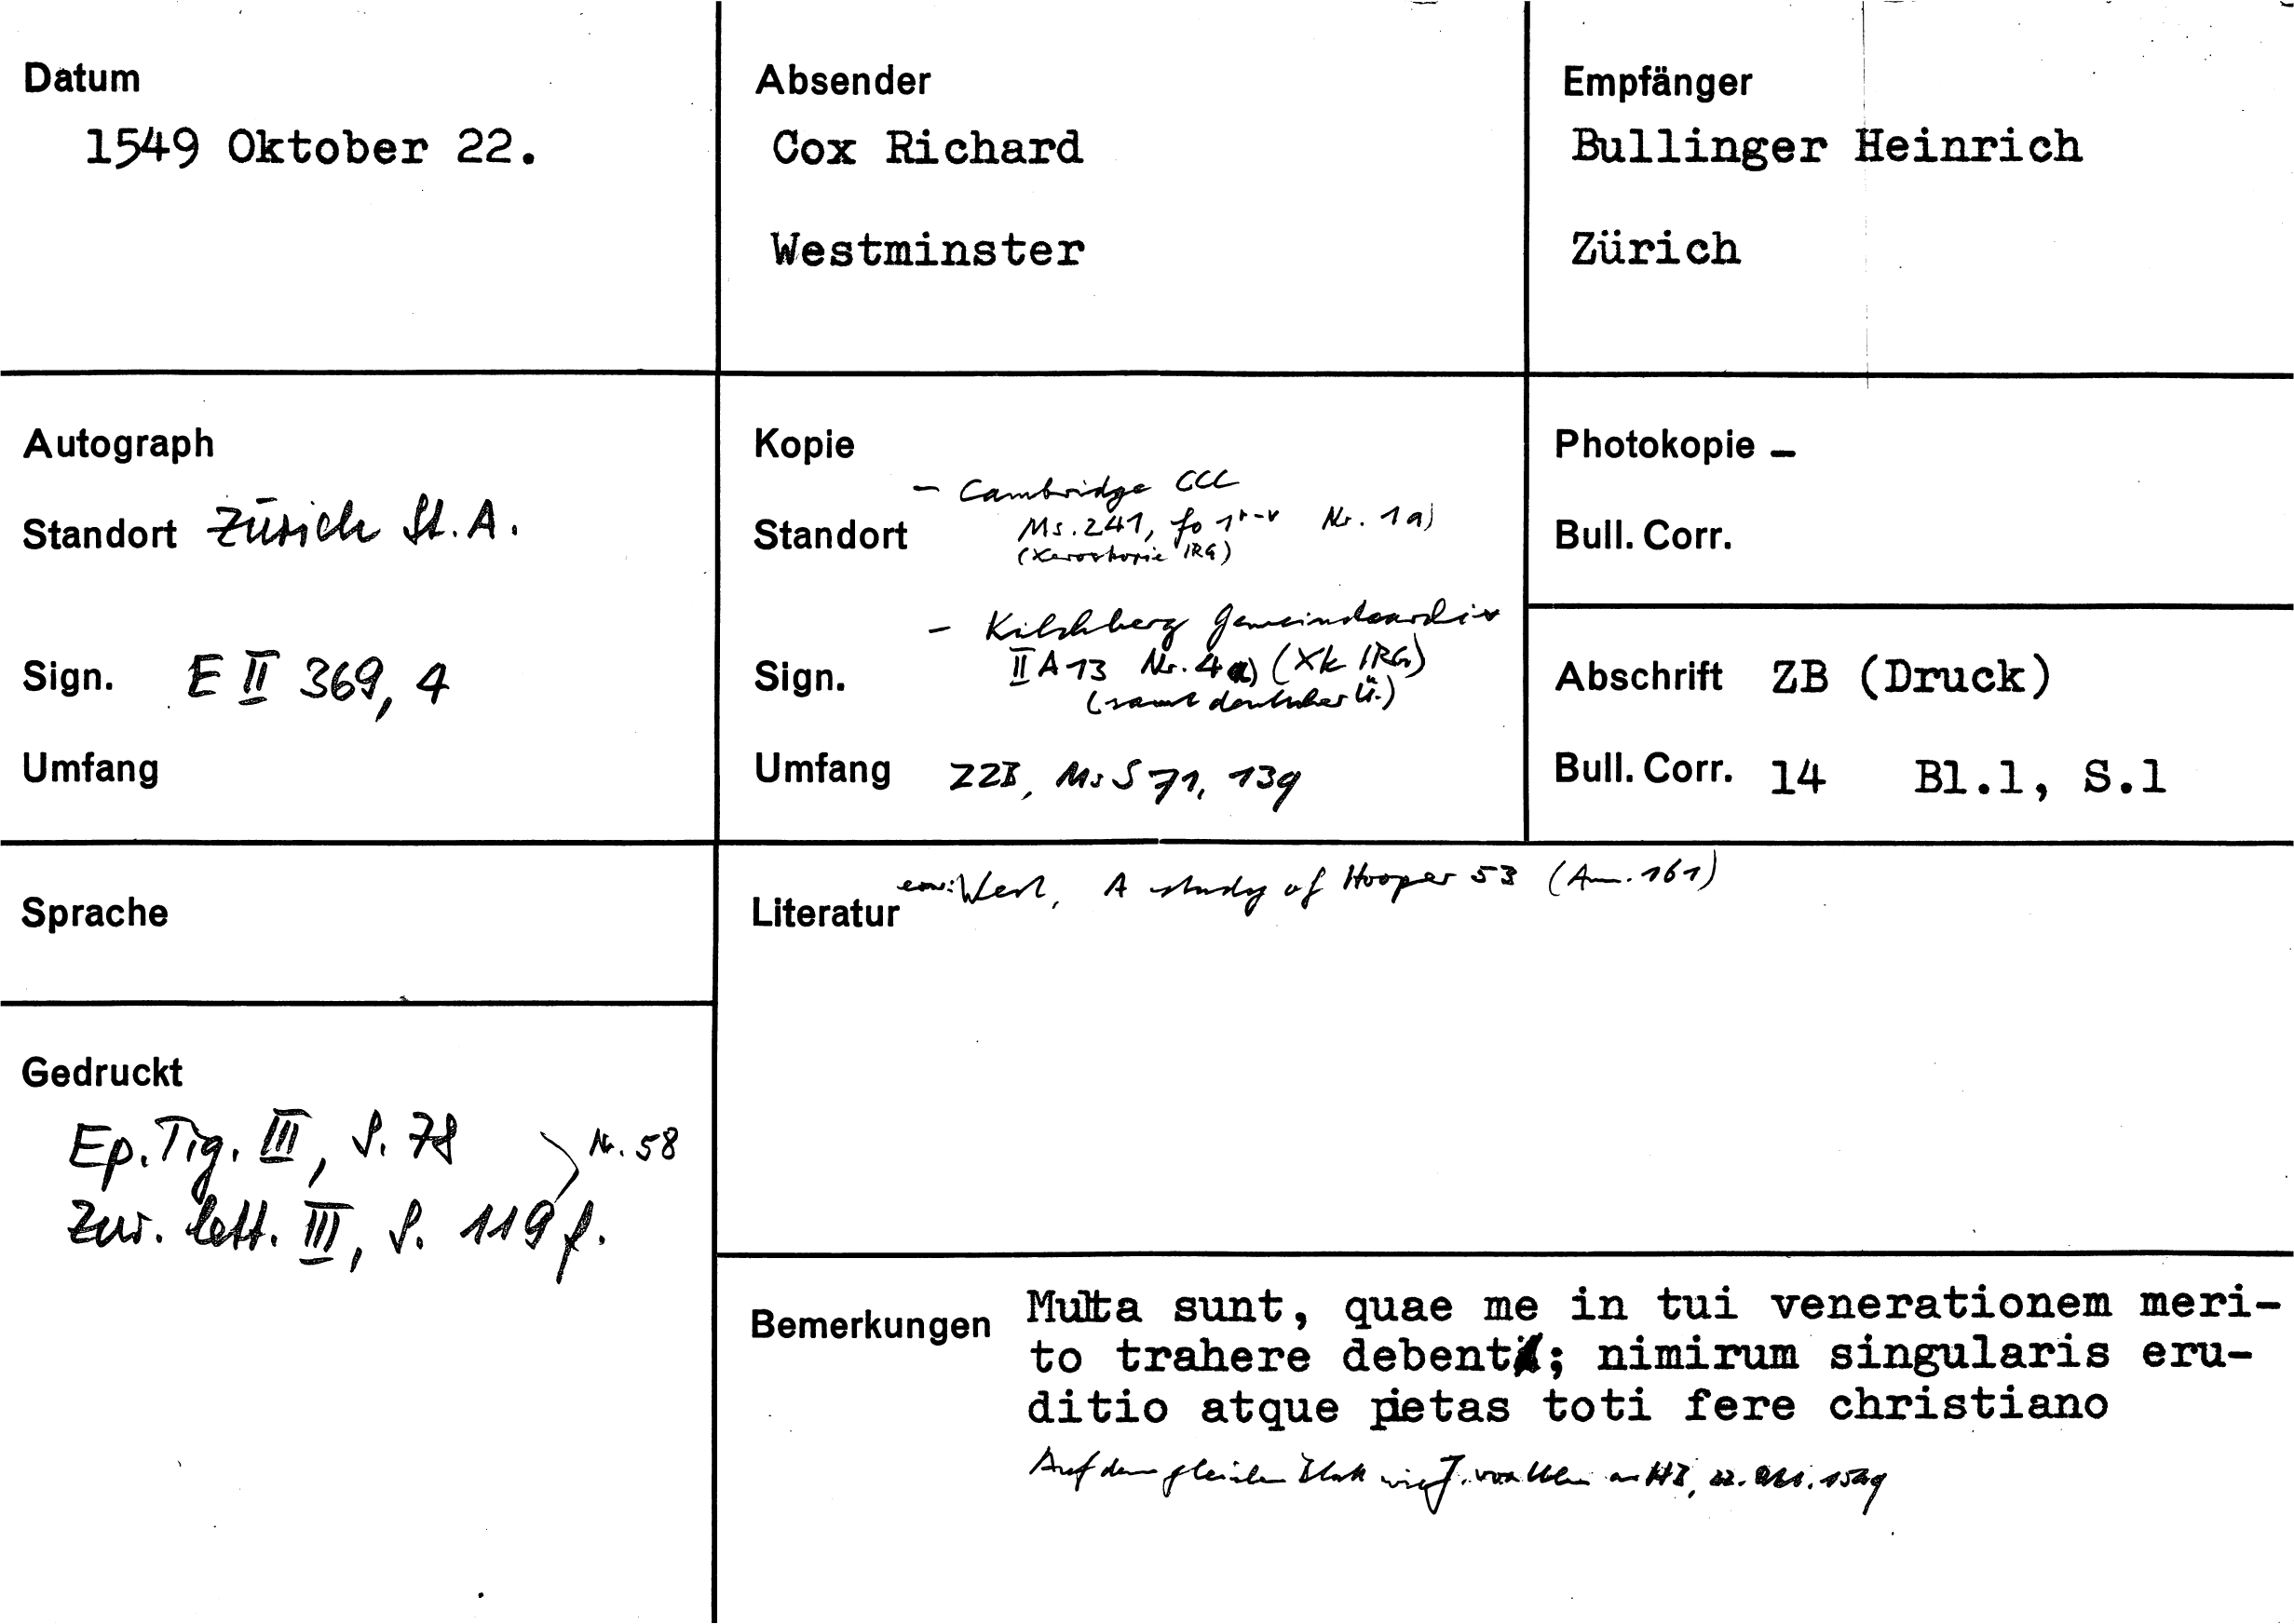 Datum
1549 Oktober 22.
Absender
Cox Richard
Westminster
Empfänger
Bullinger Heinrich
Zürich
Autograph
Standort Zürich St. A.
Sign. E II 369, 4
Umfang
Kopie
- Cambridge CCC
Standort Ms. 241, fo 1r-v Nr. 1a)
(Xerokopie IRG)
- Kilchberg Gemeindearchiv
Sign. II A 13 Nr. 4a) (Xk IRG)
(samt deutscher Ü.)
Umfang ZZB, Ms S 71, 139
Photokopie -
Bull. Corr.
Abschrift ZB (Druck)
Bull. Corr. 14 Bl.1, S.1
Sprache
Literatur West, A study of Hooper 53 (Anm. 161)
Gedruckt
Ep. Tig. III, S. 78
Nr. 58
Zur. lett. III, S. 119 f.
Bemerkungen Multa sunt, quae me in tui venerationem meri-
to trahere debent; nimirum singularis eru-
ditio atque pietas toti fere christiano
Auf dem gleichen Blatt wie J. von Ulm an HB, 22. Okt. 1549